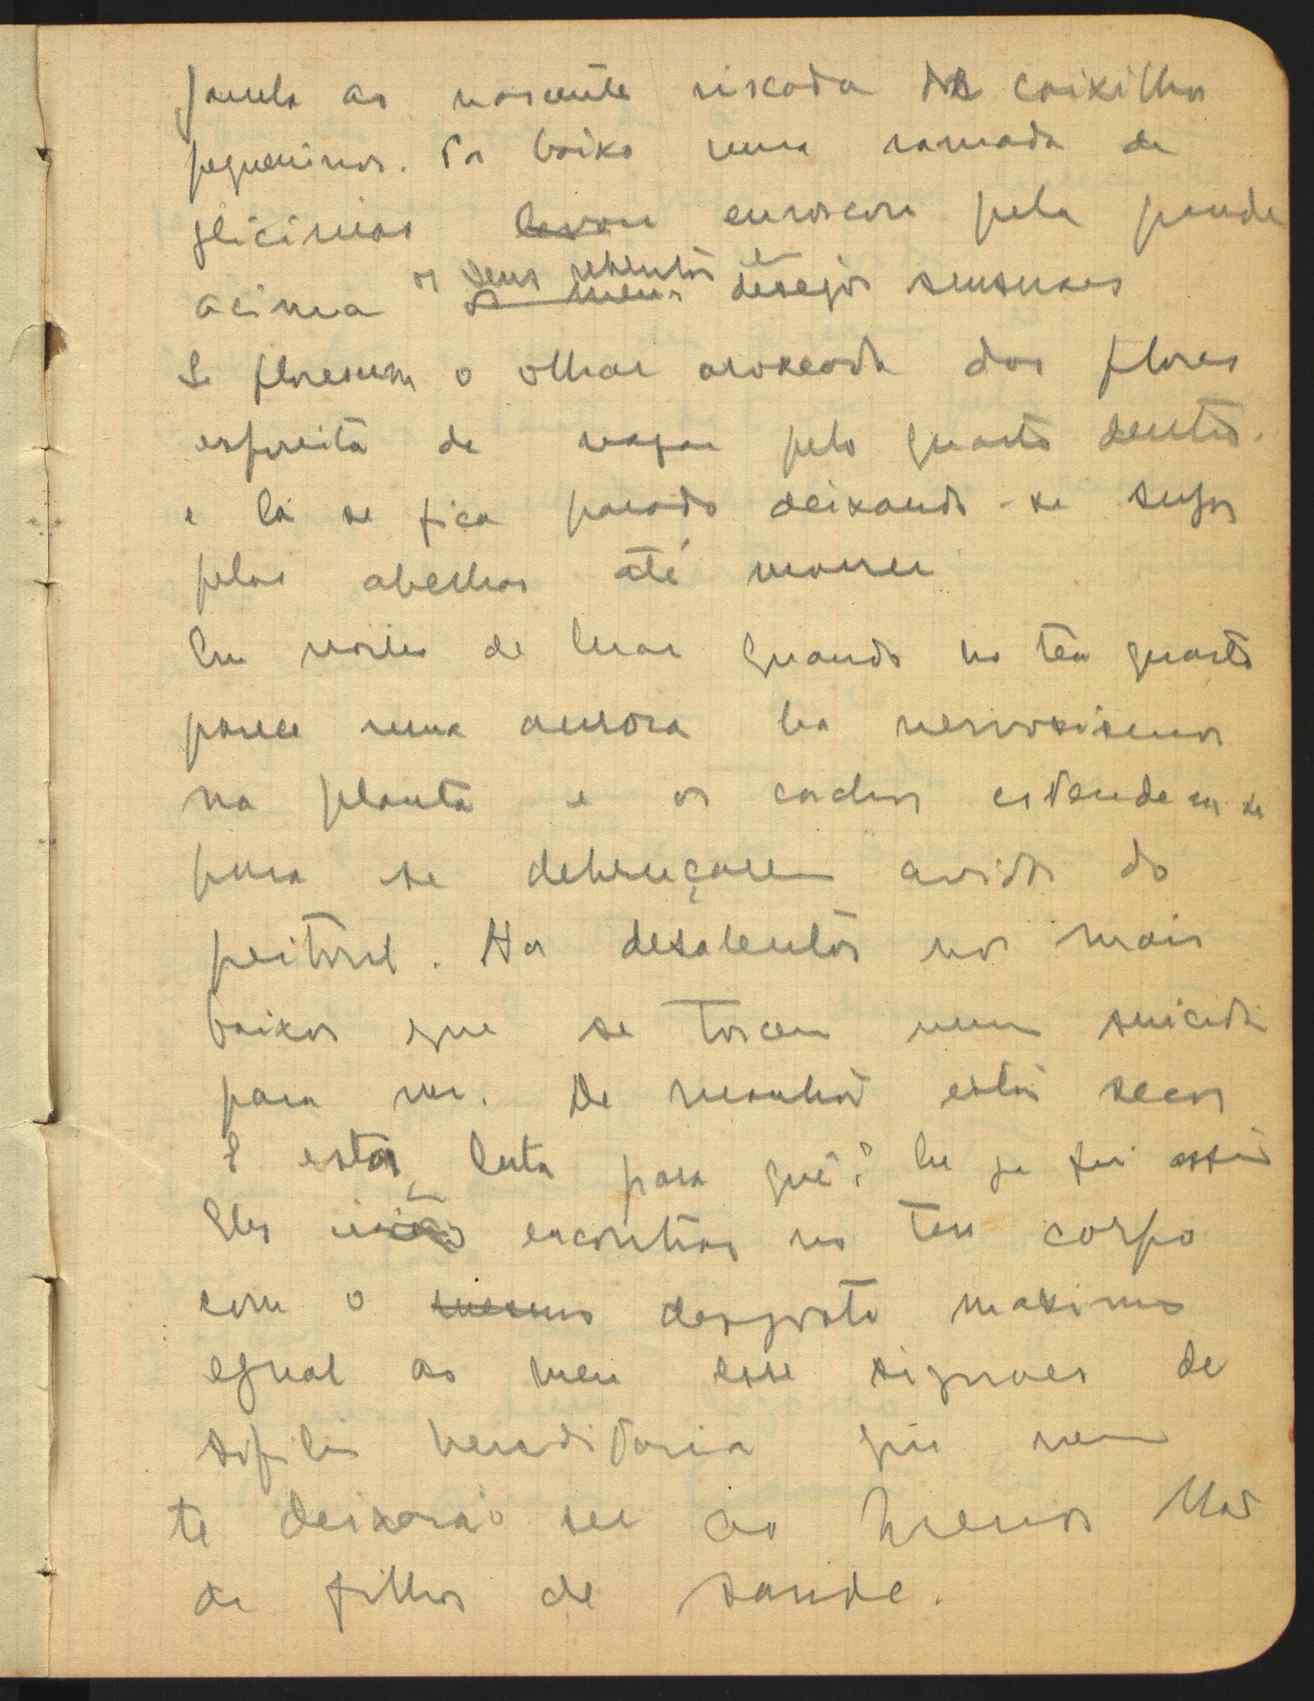 janela ao nascente riscada de caixilhos
pequeninos. Por baixo uma ramada de
glicinias levou enroscou pela parede
acima os seus rebentos e desejos sensuaes
Se florescem o olhar aroxeado das flores
espreita de vagar pelo quarto dentro.
e lá se fica parado deixando-se sugar
pelas abelhas até morrer
Em noites de luar quando no teu quarto
parece uma aurora ha nervosismos
na planta e os cachos estendem-se
para se debruçarem avidos do
peitoril. Ha desalentos nos mais
baixos que se torcem num suicidio
para ver. De manhã estão secos
E esta luta para quê? Eu ja fui assim
Eles encontrar no teu corpo
com o mesmo desgosto maximo
egual ao meu esse signaes de
sifilis hereditaria que nem
te deixarão ser ao menos Mãe
de filhos de saude.